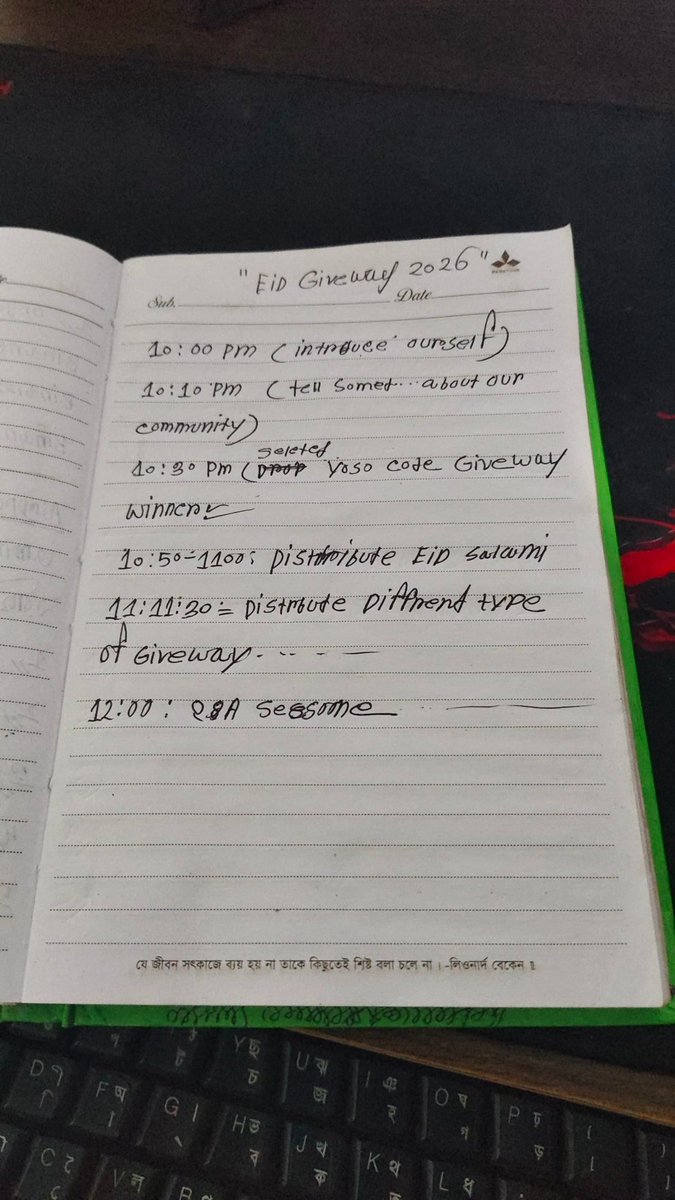 "EiD Giveway 2026"
Sub. Date
10:00 pm (introuce ourself)
10:10 pm (tell somet... about our
community)
seleted
10:30 pm (Drop Yoso code Giveway
winner
10:50-1100: Distribute EiD salami
11:11:30 = Distrbute Diffrent type
of Giveway. .. -
12:00 : Q&A Sessome
যে জীবন সৎকাজে ব্যয় হয় না তাকে কিছুতেই শিষ্ট বলা চলে না। -লিওনার্দ বেকেন ॥
Y ছ চ
U ঝ জ
I ঞ হ
O ষ গ
P ঢ ড
D
F অ
G ।
H ভ ব
J থ ক
K থ
L ধ
C
V ন
B
N